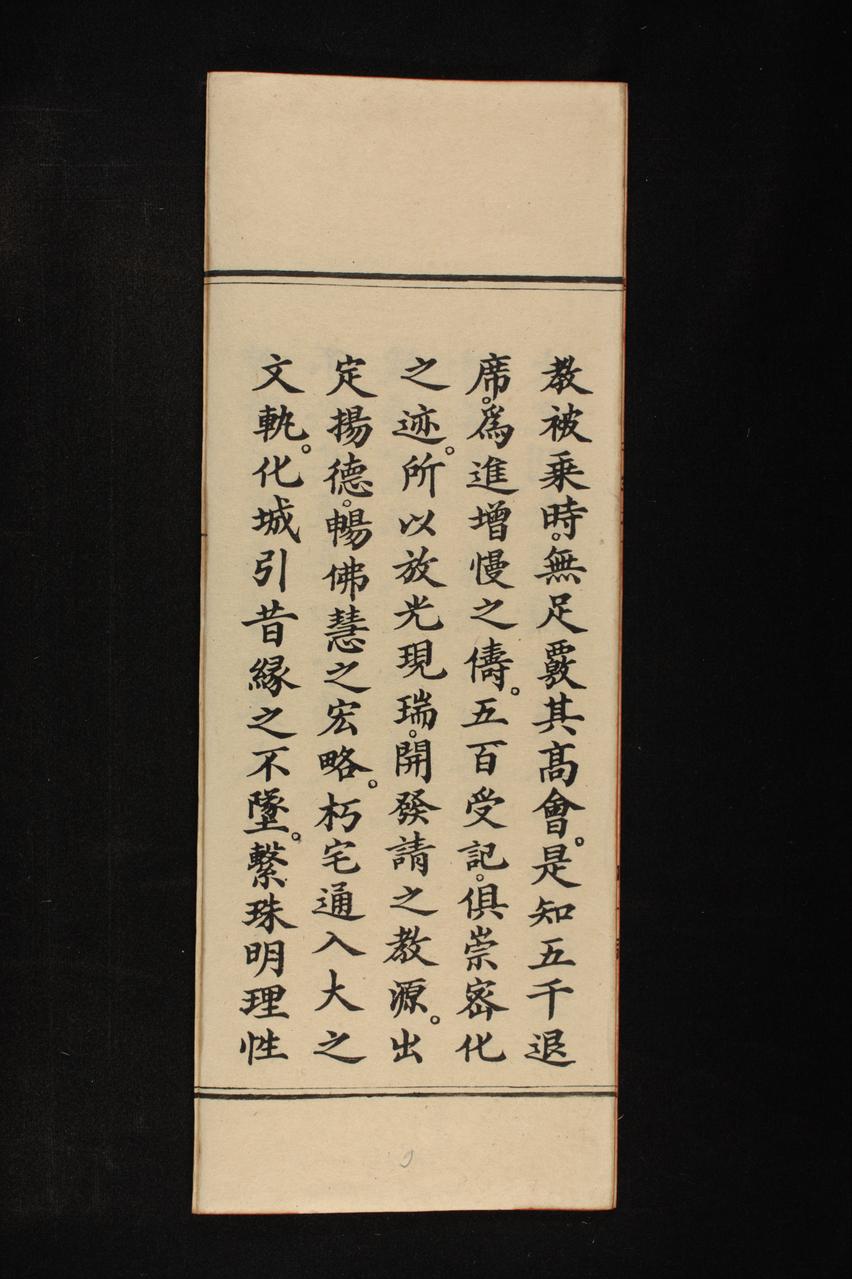 教被乘時。無足覈其高會。是知五千退
席。爲進增慢之儔。五百受記。俱崇密化
之迹。所以放光現瑞。開發請之教源。出
定揚德。暢佛慧之宏略。朽宅通入大之
文軌。化城引昔縁之不墜。繫珠明理性